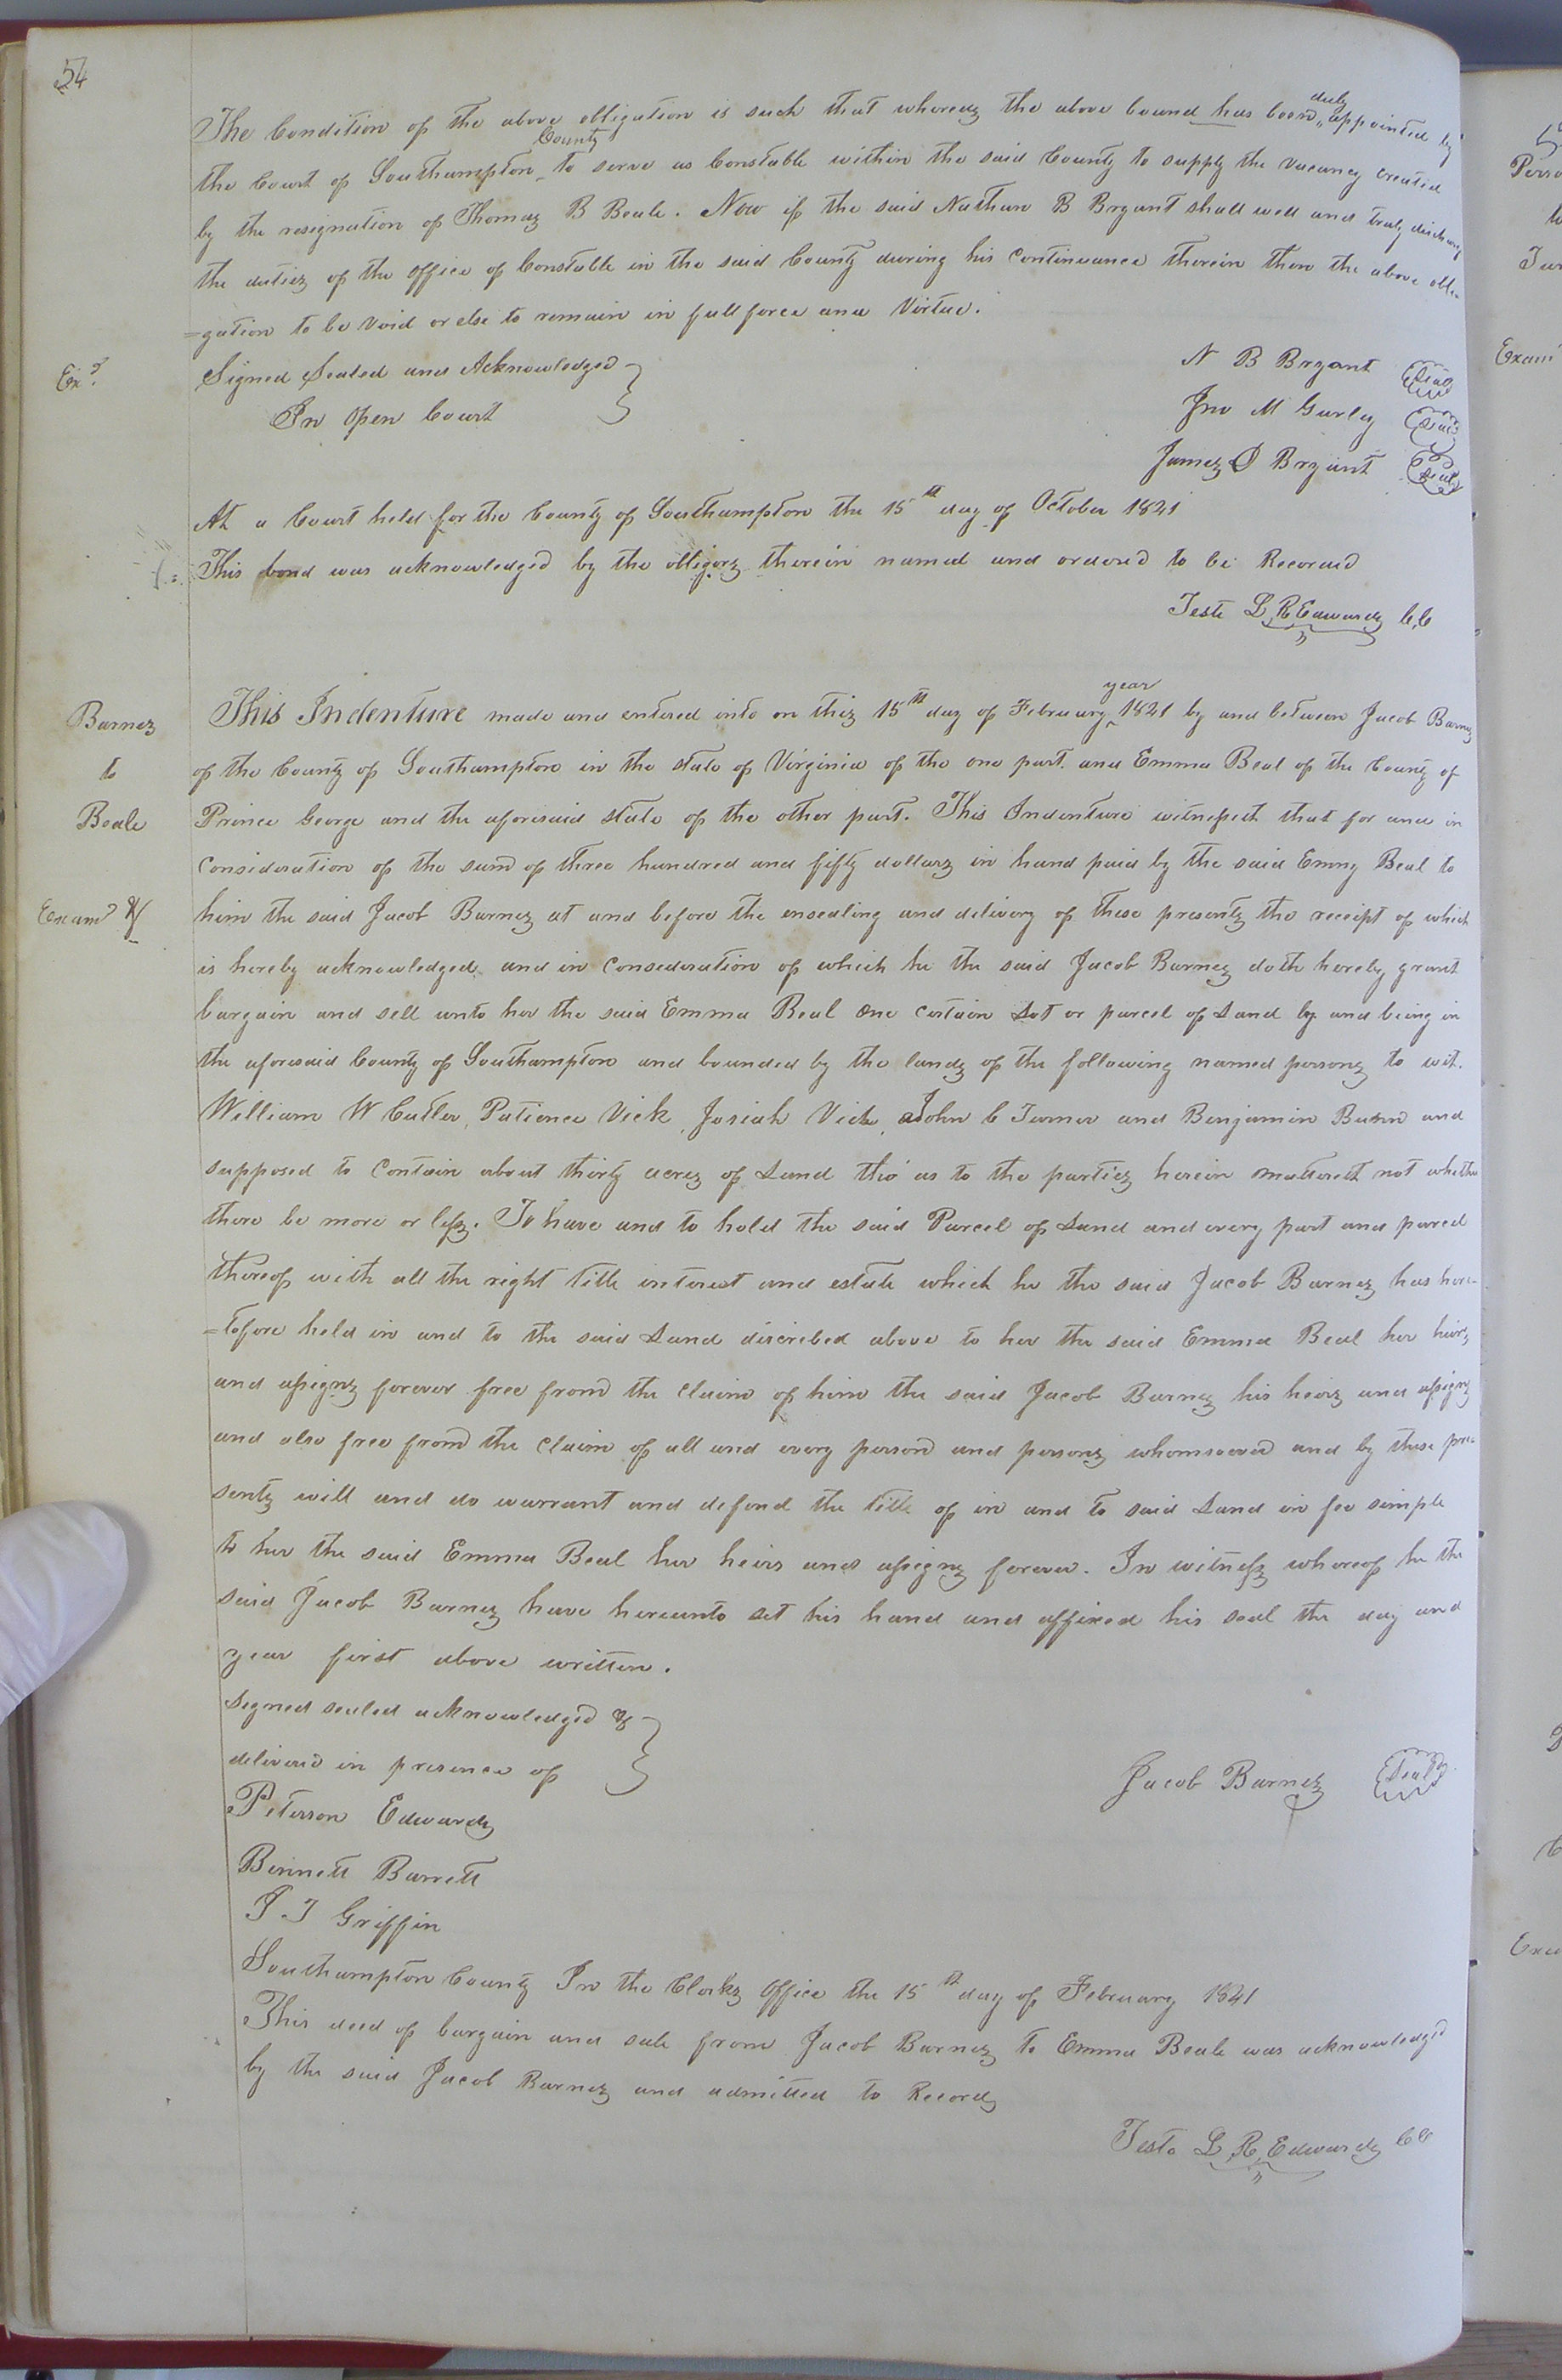 54
The Condition of the above obligation is such that whereas the above bound has been duly appointed by
the Court of Southampton County to serve as Constable within the said County to supply the vacancy created
by the resignation of Thomas B Beale. Now if the said Nathan B Bryant shall well and truly discharge
the duties of the office of Constable in the said County during his Continuance therein then the above obli-
=gation to be void or else to remain in full force and Virtue.
Exd.
Signed Sealed and Acknowledged
In open Court
N B Bryant Seal
Jno M Gurley Seal
James D Bryant Seal
At a Court held for the County of Southampton the 15th day of October 1821
This bond was acknowledged by the obligors therein named and ordered to be Recorded
Teste L R Edwards CC
Barnes
to
Beale
Examd
This Indenture made and entered into on this 15th day of February year 1821 by and between Jacob Barnes
of the County of Southampton in the state of Virginia of the one part and Emma Beal of the County of
Prince George and the aforesaid state of the other part. This Indenture witnesseth that for and in
Consideration of the sum of three hundred and fifty dollars in hand paid by the said Emmy Beal to
him the said Jacob Barnes at and before the ensealing and delivery of these presents the receipt of which
is hereby acknowledged and in Consideration of which he the said Jacob Barnes doth hereby grant
bargain and sell unto her the said Emma Beal one certain Lot or parcel of Land ly and being in
the aforesaid County of Southampton and bounded by the lands of the following named persons to wit.
William W Cutler, Patience Vick, Josiah Vick, John C Turner and Benjamin and
supposed to Contain about thirty acres of Land tho' as to the parties herein mattereth not whether
there be more or less. To have and to hold the said Parcel of Land and every part and parcel
thereof with all the right title interest and estate which he the said Jacob Barnes has here-
=tofore held in and to the said Land discribed above to her the said Emma Beal her heirs
and assigns forever free from the Claim of him the said Jacob Barnes his heirs and assigns
and also free from the Claim of all and every person and persons whomsoever and by these pre-
sents will and do warrant and defend the title of in and to said Land in fee simple
to her the said Emma Beal her heirs and assigns forever. In witness whereof he the
said Jacob Barnes have hereunto set his hand and affixed his seal the day and
year first above written.
Signed sealed acknowledged &
delivered in presence of
Jacob Barnes Seal
Peterson Edwards
Bennett Barrett
P J Griffin
Southampton County In the Clerks Office the 15th day of February 1821
This deed of bargain and sale from Jacob Barnes to Emma Beale was acknowledged
by the said Jacob Barnes and admitted to Record
Teste L R Edwards CC